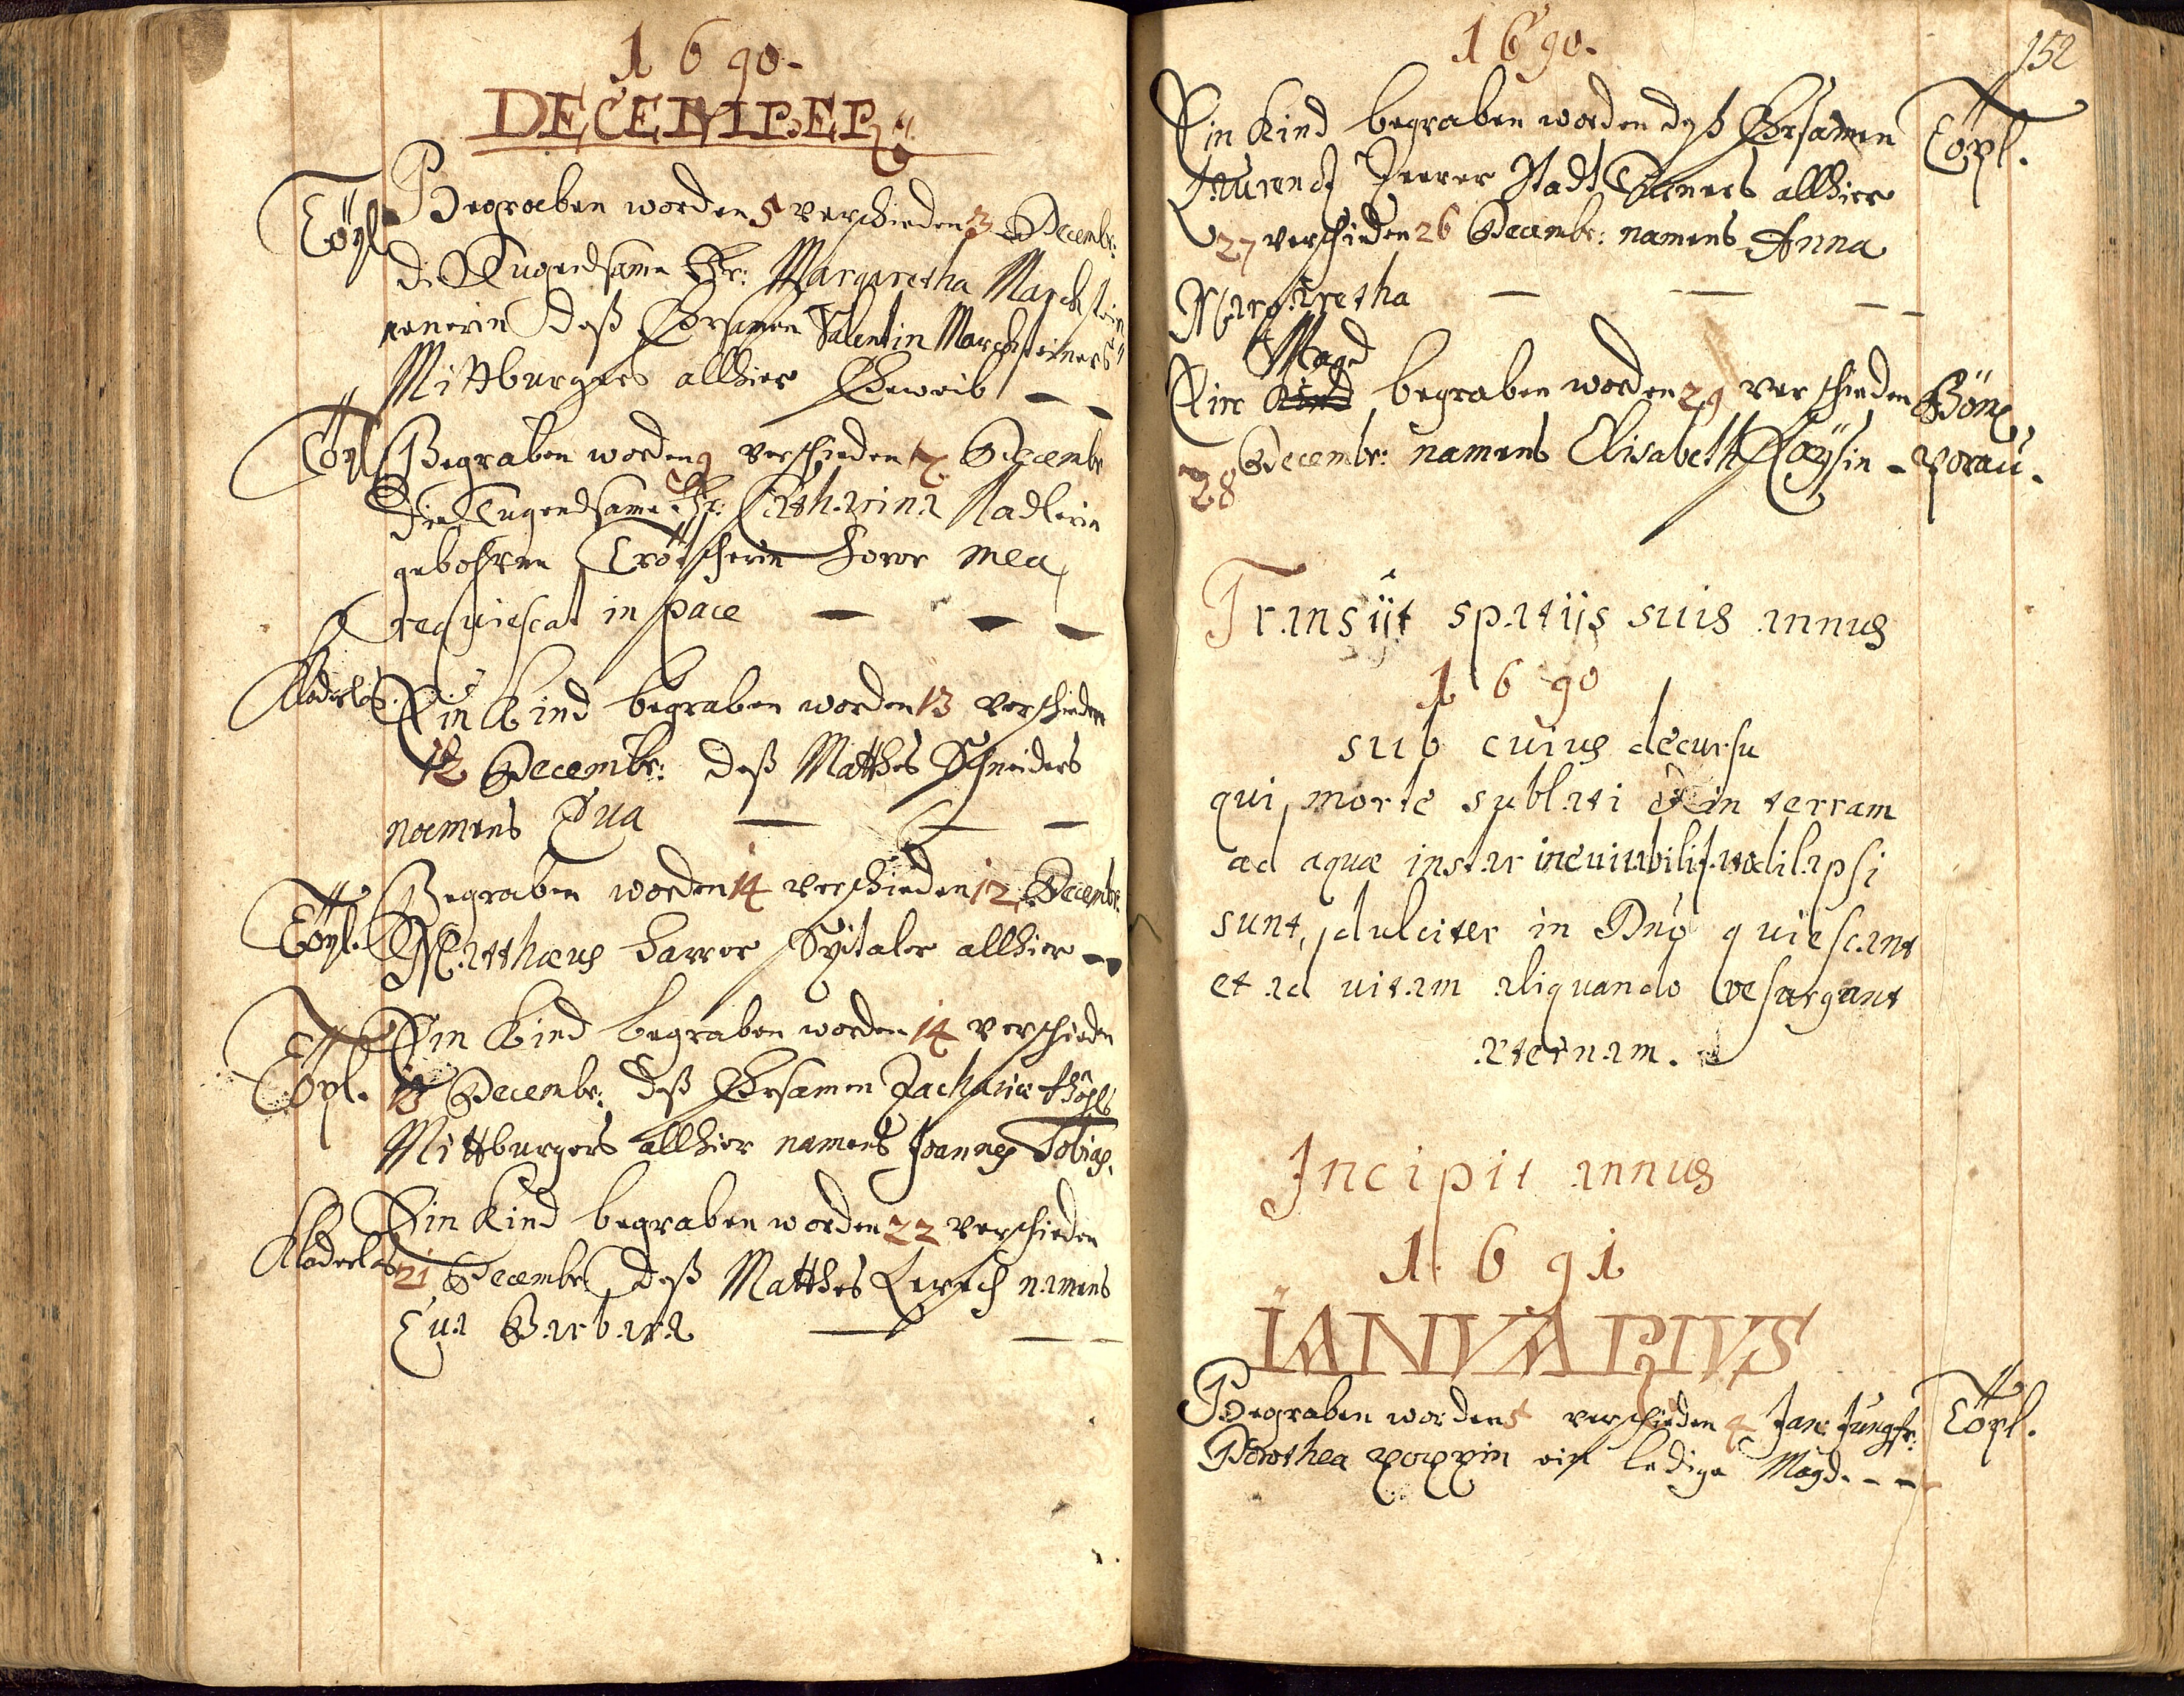 1690.
DECEMBER
Töpl
Begraben worden 5 verschieden 3 Decembr:
die Tugendsame Fr: Margaretha Marckstein
nerin deß Ehrsamen Valentin Marcksteiners
Mittburgers allhier Eheweib
Töpl
Begraben worden 9 verschieden 7 Decembr
die Tugendsame Fr: Catharina Nadlerin
gebohrne Trötscherin Soror mea
requiescat in pace
Kladerlas
Ein Kind begraben worden 13 verschieden
12 Decembr: deß Matthes Schneiders
namens Eva
Töpl.
Begraben worden 14 verschieden 12 Decembr:
Matthæus Harrer Spitaler allhier
Töpl.
Ein Kind begraben worden 14 verschieden
13 Decembr: deß Ehrsamen Zachariæ
Mittburgers allhier namens Joannes Tobias.
Kladerlas
Ein Kind begraben worden 22 verschieden
21 Decembr deß Matthes Lerch namens
Eva Barbara
152
1690.
Ein Kind begraben worden deß Ehrsamen
Töpl.
Laurentz Stadt allhier
27 verschieden 26 Decembr: namens Anna
Margaretha
Magd
Eine Kind begraben worden 29 verschieden
28 Decembr: namens Elisabeth
Transijt spatijs suis annus
1690
sub cuius decursu
qui morte sublati & in terram
ad aquæ instar dilapsi
sunt, dulciter in Dnō quiescant
et ad vitam aliquando resurgant
æternam.
Incipit annus
1691
IANVARIVS
Begraben worden 5 verschieden 4 Jan: Jungfr:
Töpl.
Dorothea Poppin ein ledige Magd.